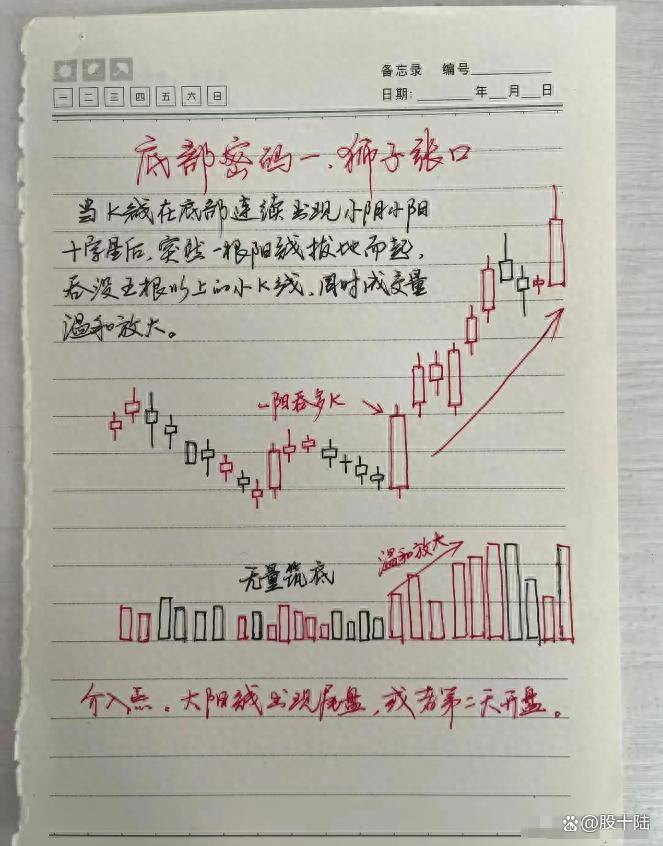 备忘录 编号
一 二 三 四 五 六 日
日期: 年 月 日
底部密码一、狮子张口
当K线在底部连续出现小阴小阳
十字星后,突然一根阳线拔地而起,
吞没五根以上的小K线,同时成交量
温和放大。
一阳吞多K
温和放大
无量筑底
介入点。大阳线出现尾盘,或者第二天开盘。
百家号/股十陆